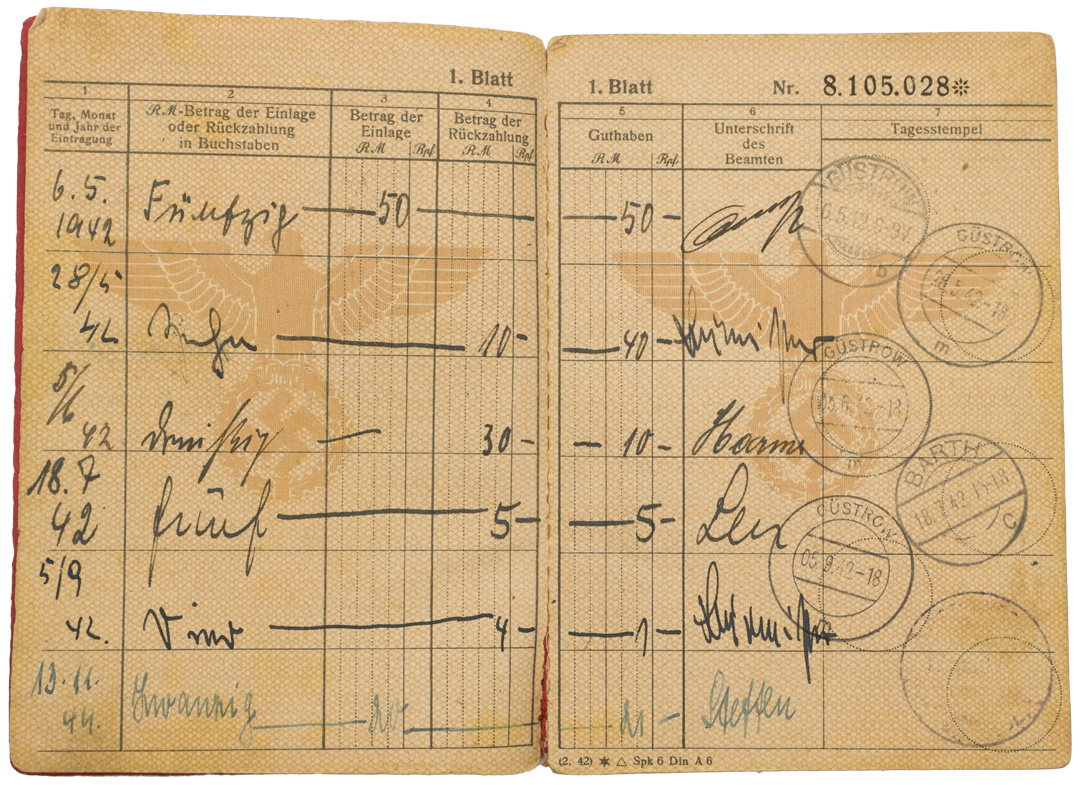 1. Blatt
1 2 3 4
Tag, Monat und Jahr der Eintragung
RM-Betrag der Einlage oder Rückzahlung in Buchstaben
Betrag der Einlage RM Rpf
Betrag der Rückzahlung RM Rpf
6. 5. 1942 Fünfzig 50
28/5 42 zehn 10 -
5/6 42 dreißig 30 -
18. 7 42 fünf 5 -
5/9 42. vier 4 -
13. 11. 44. Zwanzig 20
1. Blatt Nr. 8.105.028*
5 6 7
Guthaben RM Rpf
Unterschrift des Beamten
Tagesstempel
50 -
GÜSTROW
6.5.42
b
40 -
GÜSTROW
5.42-18
m
10 -
GÜSTROW
05.6.42-18
m
5 -
BARTH
18.7.42
c
1 -
GÜSTROW
05.9.42-18
21 - Steffen
(2. 42) ✶ △ Spk 6 Din A 6